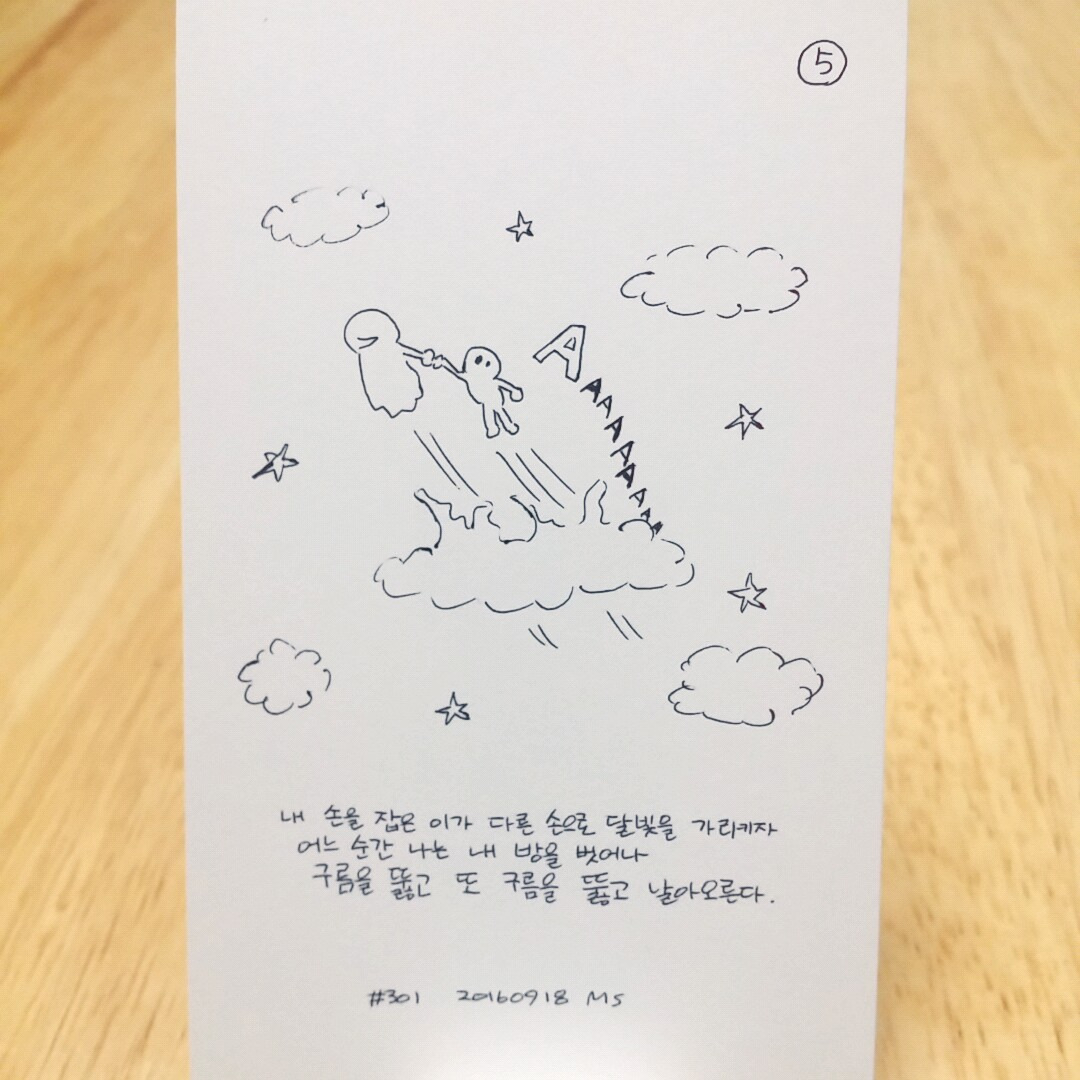 ⑤
A
AAAAAAAAA
내 손을 잡은 이가 다른 손으로 달빛을 가리키자
어느 순간 나는 내 방을 벗어나
구름을 뚫고 또 구름을 뚫고 날아오른다.
#301 20160918 MS